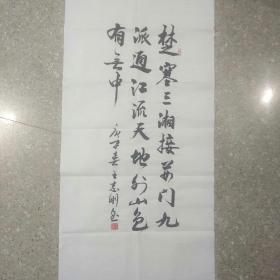 楚塞三湘接荆门九
派通江流天地外山色
有无中
王志刚书